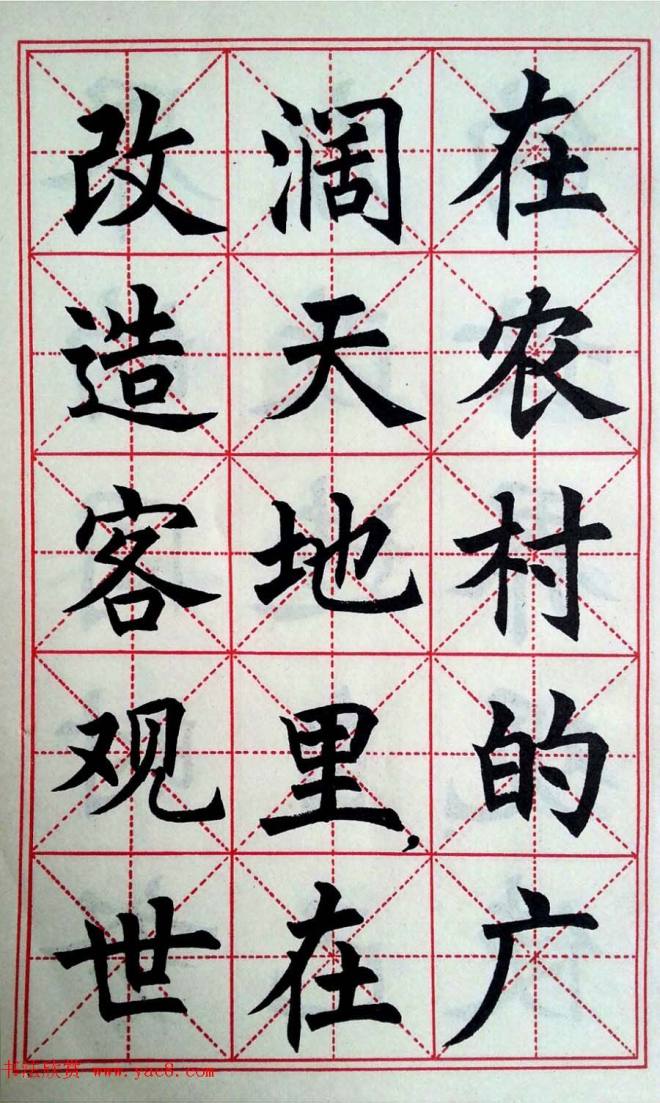 在农村的广
阔天地里，在
改造客观世
书法欣赏 www.yac8.com